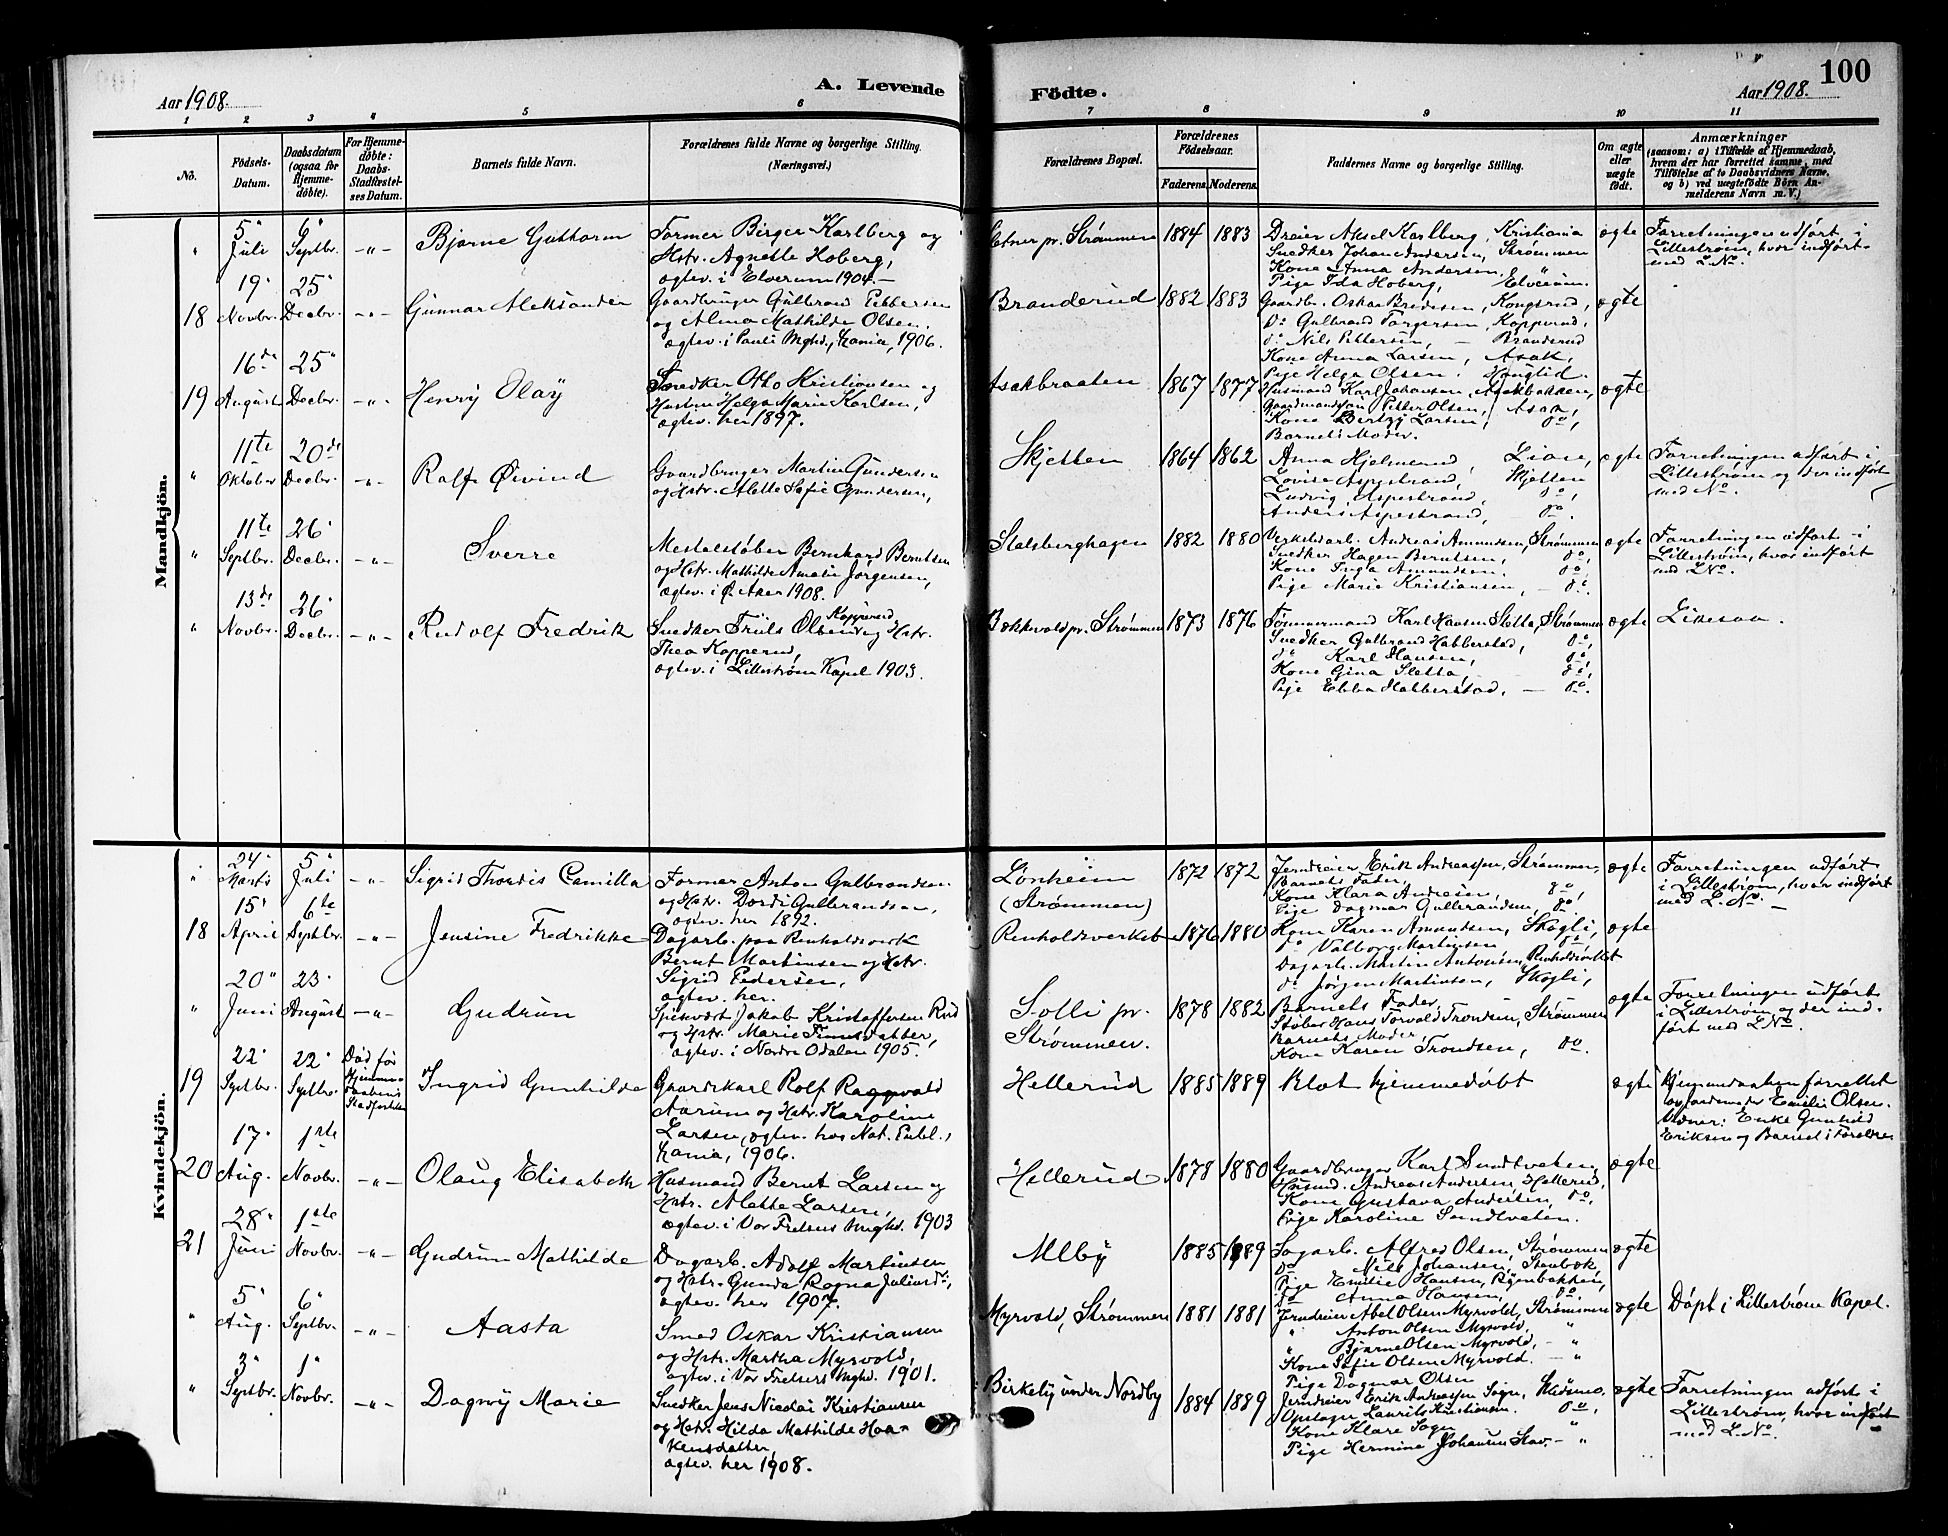 Aar 1908.
A. Levende Födte.
Aar 1908.
100
1 2 3 4 5 6 7 8 9 10 11
No.
Födsels-Datum.
Daabsdatum (ogsaa for Hjemmedöbte).
For Hjemmedöbte: Daabs-Stadfæstelses Datum.
Barnets fulde Navn.
Forældrenes fulde Navne og borgerlige Stilling. (Næringsvei.)
Forældrenes Bopæl.
Forældrenes Födselsaar.
Faderens. Moderens.
Faddernes Navne og borgerlige Stilling.
Om ægte eller uægte födt.
Anmærkninger
(saasom: a) i Tilfælde af Hjemmedaab, hvem der har forrettet samme, med Tilföielse af to Daabsvidners Navne, og b) ved uægtefödte Börn Anmelderens Navn m. V.)
Mandkjön.
" 5' Juli 6' Septbr. -"- Bjarne Guthorm
Former Birger Karlberg og
Hstr. Agnette Hoberg,
ægtev. i Elverum 1904.-
pr. Strømmen 1884 1883
Dreier Aksel Karlberg, Kristiania
Snedker Johan Andersen, Strømmen
Kone Anna Andersen, "
Pige Ida Hoberg, Elverum.
ægte
Forretningen udført i
Lillestrøm, hvor indført
med L.No.
18 19' Novbr. 25' Decbr. -"- Gunnar Aleksander
Gaardbruger Gulbrand Pebbersen
og Alma Mathilde Olsen.
ægtev. i Pauli Mghd., Kania, 1906.
Branderud 1882 1883
Gaardbr. Oskar Bredesen, Kongsrud,
Do Gulbrand Torgersen, Kopperud,
do Nils Pettersen, — Branderud
Kone Anna Larsen, Asak,
Pige Helga Olsen, Haugtid.
ægte
19 16de August 25' Decbr. -"- Henry Olaf
Snedker Otto Kristiansen og
Hustru Helga Marie Karlsen,
ægtev. her 1897.
Asakbraaten 1867 1877
Husmand Karl Johansen, Asakbakken,
Gaardmandssøn Petter Olsen, Asak,
Kone Bertzy Larsen, do,
Barnets Moder.
ægte
" 11te Oktober 20de Decbr. -"- Rolf Øivind
Gaardbruger Martin Gundersen
og Hstr. Alette Sofie Gundersen,
Skjetten 1864 1862
Anna Hjelmerud
Lovise Aspestrand, Skjetten
Ludvig Aspestrand, do,
Anders Aspestrand, — do.
ægte
Forretningen udført i
Lillestrøm og der indført
med No.
" 11te Septbr. 26' Decbr. -"- Sverre
Metalstøber Bernhard Berntsen
og Hstr. Mathilde Amalie Jørgensen,
ægtev. i Ø. Aker 1908.
Stalsberghagen 1882 1880
Verkstedsarb. Andreas Amundsen, Strømmen
Snedker Hagen Berntsen, do,
Kone Inga Amundsen, do,
Pige Marie Kristiansen, — do.
ægte
Forretningen udført i
Lillestrøm, hvor indført
med L.No.
" 13de Novbr. 26' Decbr. -"- Rudolf Fredrik
Snedker Truls Olsen Kopperud og Hstr.
Thea Kopperud,
ægtev. i Lillestrøm Kapel 1903.
Bækkvold pr. Strømmen 1873 1876
Tømmermand Karl Hansen Sletta, Strømmen
Snedker Gulbrand Habberstad, do,
do Karl Hansen, do,
Kone Gina Sletta, do,
Pige Ebba Halberstad, — do.
ægte
Ligesaa.
Kvindekjön.
" 24' Marts 5' Juli -"- Sigrid Thordis Camilla
Former Anton Gulbrandsen
og Hstr. Dordi Gulbrandsen,
ægtev. her 1892.
Lønheim
(Strømmen)
1872 1872
Jerndreier Erik Andreassen, Strømmen,
Barnets Fader,
Kone Klara Andresen, do,
Pige Dagmar Gulbrandsen, do
ægte
Forretningen udført
i Lillestrøm, hvor indført
med L. No. —
18 15' April 6te Septbr. -"- Jensine Fredrikke
Dagarb. paa Renholdsverk
Bernt Martinsen og Hstr.
Sigrid Pedersen,
ægtev. her.
Renholdsverket 1876 1880
Kone Karen Amundsen, Skogli,
do Valborg Martinsen do
Dagarb. Martin Antonsen, Renholdsverket
do Jørgen Martinsen, Skogli,
ægte
" 20' Juni 23' August -"- Gudrun
Jakob Kristoffersen Rud
og Hstr. Marie Finnsdatter,
ægtev. i Nordre Odalen 1905.
Solli pr.
Strømmen.
1878 1882
Barnets Fader,
Støber Hans Torvald Trondsen, Strømmen
Barnets Moder,
Kone Karen Trondsen, do.
ægte
Forretningen udført
i Lillestrøm og der ind-
ført med L No.
19 22' Septbr. 22' Septbr. Död før Hjemmedaabens Stadfæstelse Ingrid Gunhilda
Gaardskarl Rolf Ragnvald
Aarum og Hstr. Karoline
Larsen, ægtev. hos Not. Publ.,
Kania, 1906.
Hellerud 1885 1889
Blot hjemmedøbt
ægte
Hjemmedaaben forrettet
af Jordemoder Emilie Olsen.
Vidner: Enke Gunhild
Eriksen og Barnets Forældre
20 17' Aug. 1ste Novbr. -"- Olaug Elisabeth
Husmand Bernt Larsen og
Hstr. Alette Larsen,
ægtev. i Vor Frelsers Mghd. 1903
Hellerud 1878 1880
Gaardbruger Karl Sundtveten,
Husmd. Andreas Andersen, Hellerud,
Kone Gustava Andersen, do,
Pige Karoline Sundtveten.
ægte
21 28' Juni 1ste Novbr. -"- Gudrun Mathilde
Dagarb. Adolf Martinsen
og Hstr. Gunda Ragna Juliusd.,
ægtev. her 1907.
Melby 1885 1889
Sagarb. Alfred Olsen, Strømmen
Do Nils Johansen, Stenbæk,
Pige Emilie Hansen,
do Anna Hansen, do.
ægte
" 5' Aug. 6' Septbr. -"- Aasta
Smed Oskar Kristiansen
og Hstr. Martha Myrvold,
ægtev. i Vor Frelsers Mghd. 1901.
Myrvold, Strømmen 1881 1881
Jerndreier Abel Olsen Myrvold, Strømmen
" Anton Olsen Myrvold, "
" Bjarne Olsen Myrvold, — "
Kone Sofie Olsen Myrvold. — "
Pige Dagmar Olsen
ægte
Døpt i Lillestrøm Kapel.
" 3' Septbr. 1' Novbr. -"- Dagny Marie
Snedker Jens Nicolai Kristiansen
og Hstr. Hilda Mathilde Haa-
kensdatter,
ægtev. her 1908.
Birkely under Nordby 1884 1889
Jerndreier Erik Andreassen Sogn, Skedsmo,
Opslager Laurits Kristiansen. do,
Kone Klara Sogn "
Pige Hermine Johansen Stav. — "
ægte
Forretningen udført i
Lillestrøm, hvor indført
med L. No.